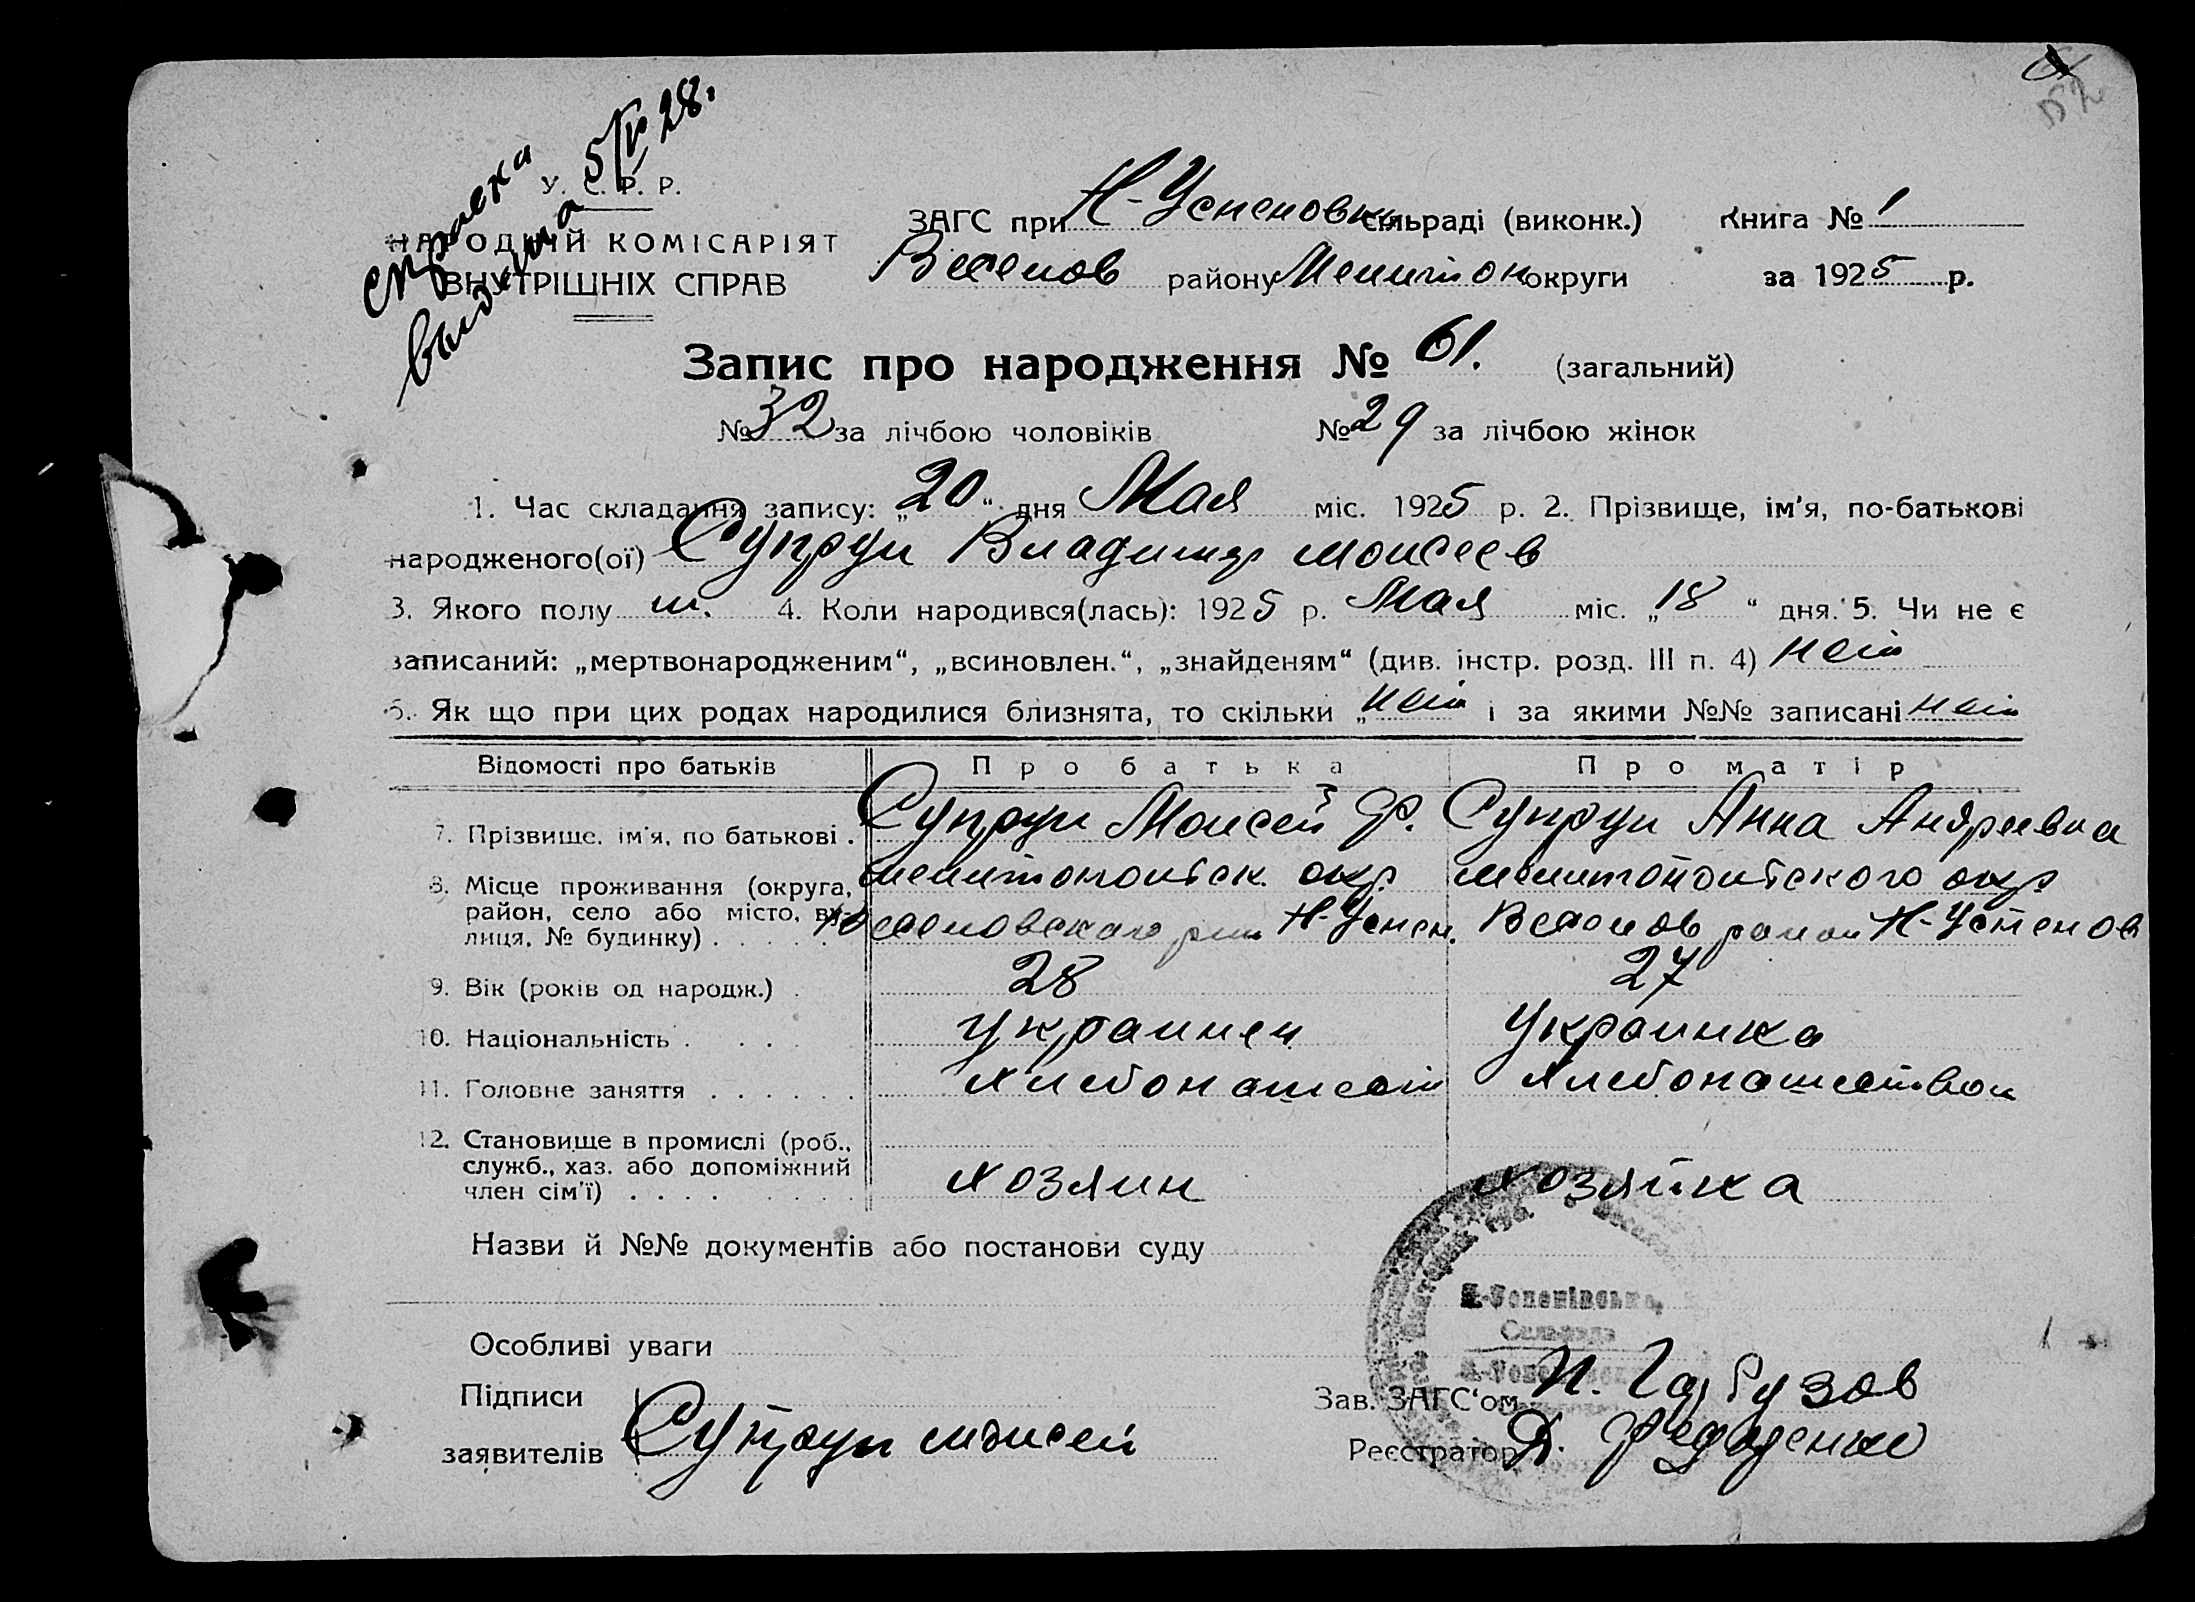 52
Справка
выдана 5/V 28.
У. С. Р. Р.
НАРОДНІЙ КОМІСАРІЯТ
ВНУТРІШНІХ СПРАВ
ЗАГС при Н-Успеновки сільраді (виконк.) Книга № 1
Веселов району Мелитоп округи за 1925 р.
Запис про народження № 61. (загальний)
№ 32 за лічбою чоловіків № 29 за лічбою жінок
1. Час складання запису: „20“ дня Мая міс. 1925 р. 2. Прізвище, ім'я, по-батькові
народженого(ої) Супрун Владимир Моисеев
3. Якого полу м. 4. Коли народився(лась): 1925 р. Мая міс. „18“ дня. 5. Чи не є
записаний: „мертвонародженим“, „всиновлен.“, „знайденям“ (див. інстр. розд. III п. 4) нет
6. Як що при цих родах народилися близнята, то скільки „нет і за якими №№ записані нет
Відомості про батьків Про батька Про матір
7. Прізвище, ім'я, по батькові . Супрун Моисей Ф. Супрун Анна Андреевна
8. Місце проживання (округа, мелитопольск. окр. мелитопольского окр.
район, село або місто, ву-
лиця, № будинку) . . . . . Веселовского рна Н-Успен. Веселов район Н-Успенов
9. Вік (років од народж.) . 28 27
10. Національність . . . . Украинец Украинка
11. Головне заняття . . . . . . хлебопашест хлебопашеством
12. Становище в промислі (роб.,
служб., хаз. або допоміжний
член сім'ї) . . . . хозяин хозяйка
Назви й №№ документів або постанови суду
Н.-Успенівська,
Сельрада
Особливі уваги
Підписи Зав. ЗАГС'ом П. Гарбузов
заявителів Супрун Моисей Реєстратор Д. Федоренко